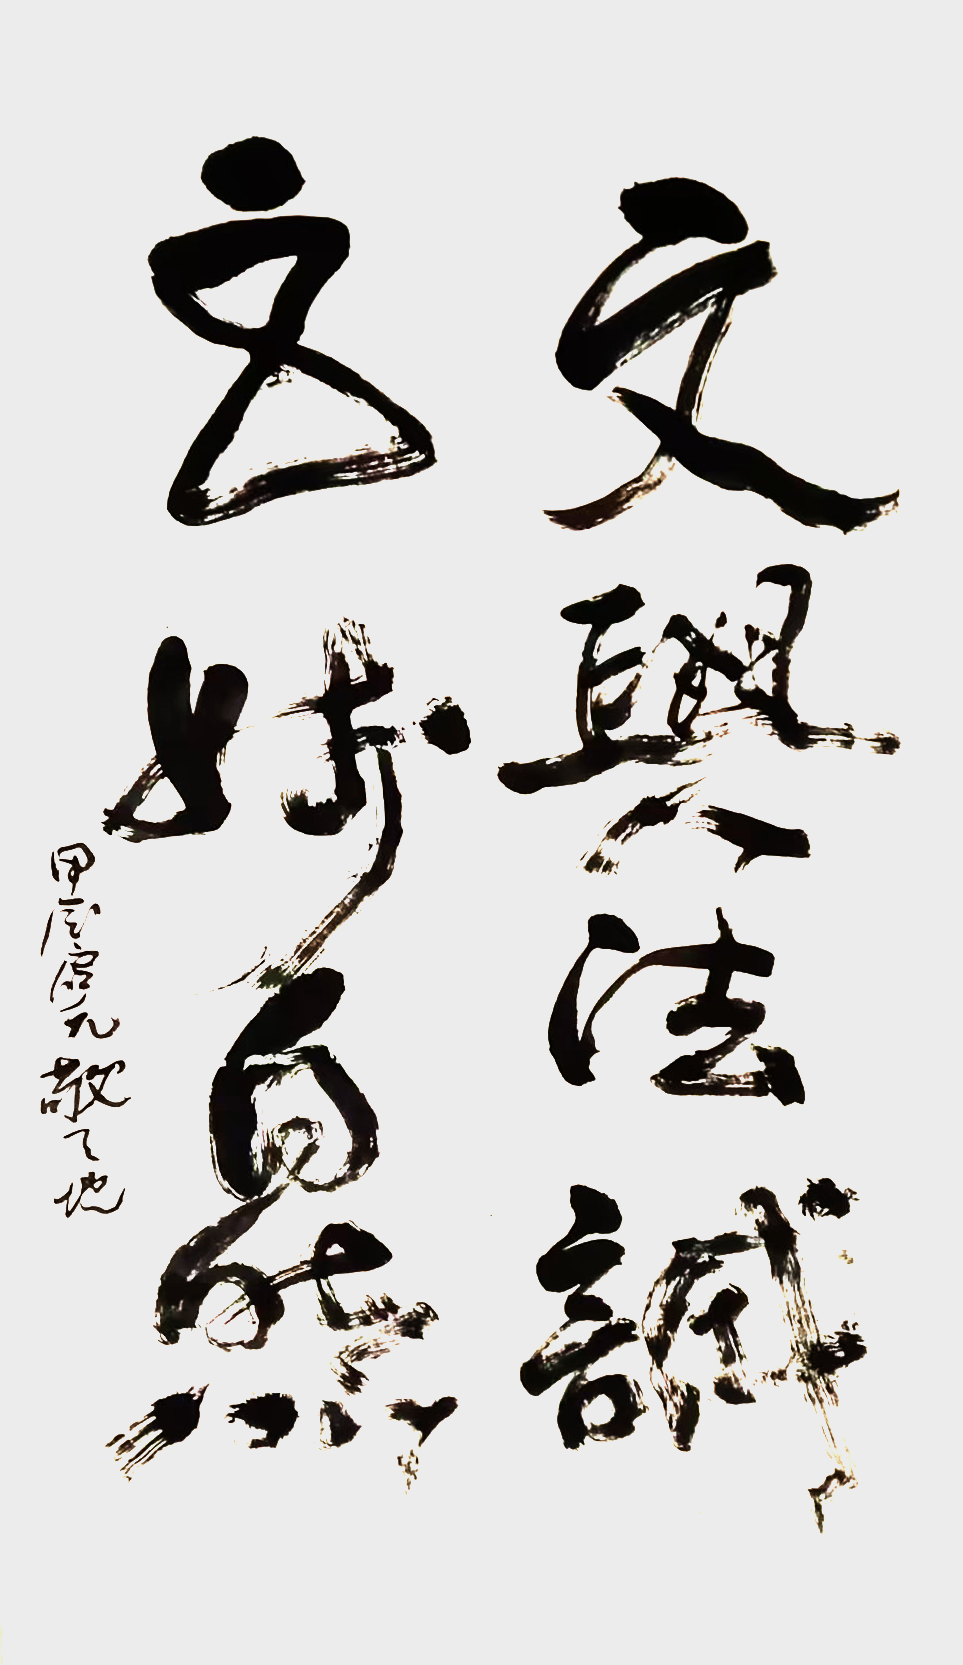 文與法誠
玄妙自然
甲辰唐九敬之地